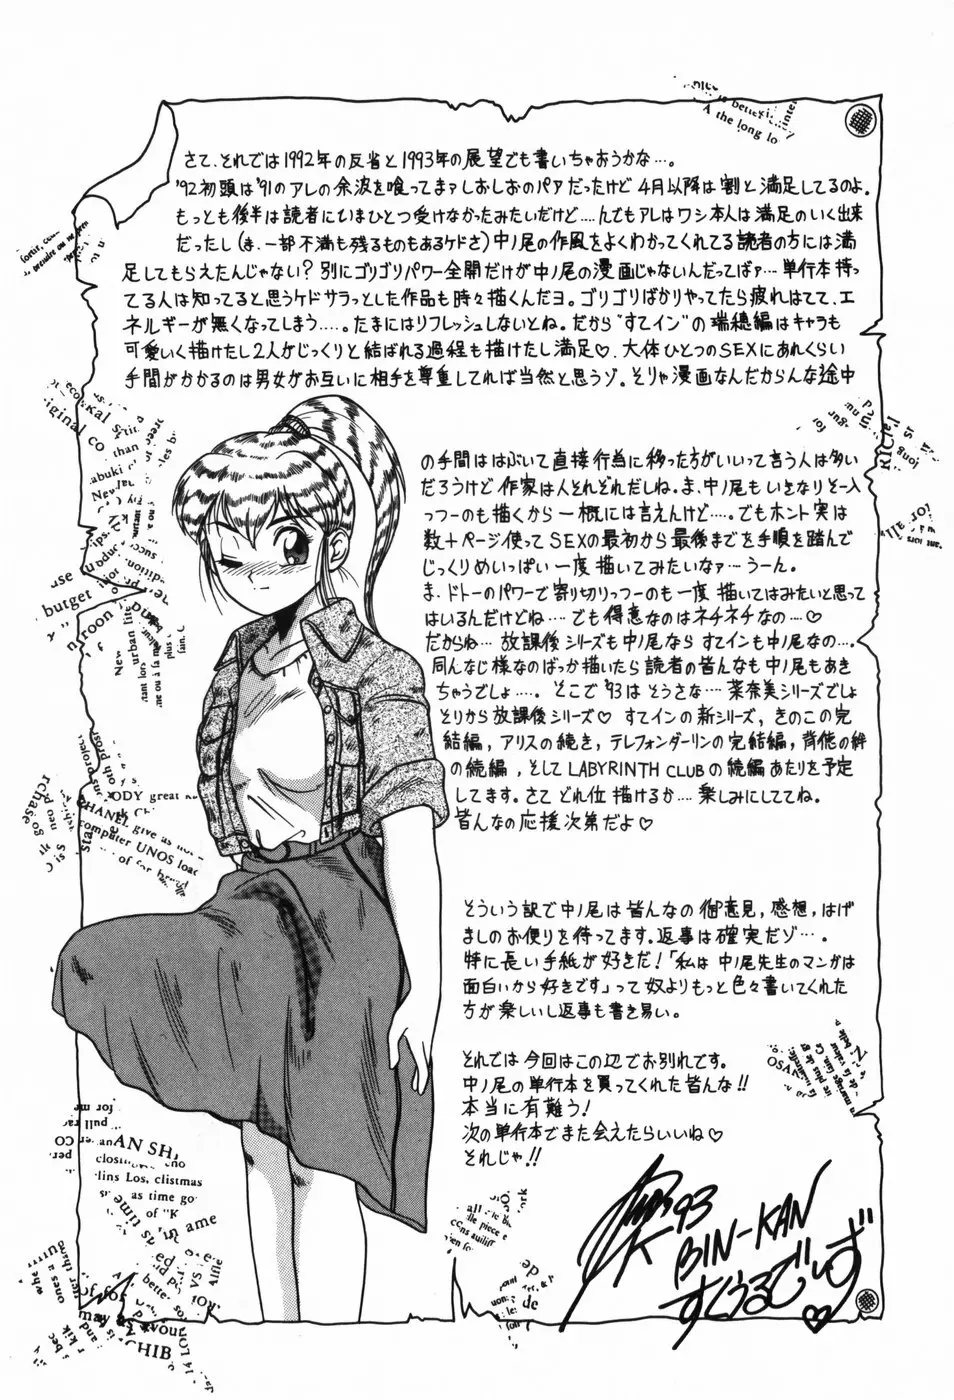 さて、それでは1992年の反省と1993年の展望でも書いちゃおうかな…。
'92初頭は'91のアレの余波を喰ってまァしおしおのパアだったけど4月以降は割と満足してるのよ。
もっとも後半は読者にいまひとつ受けなかったみたいだけど…んでもアレはワシ本人は満足のいく出来
だったし(ま、一部不満も残るものもあるケドさ)中ノ尾の作風をよくわかってくれてる読者の方には満
足してもらえたんじゃない?別にゴリゴリパワー全開だけが中ノ尾の漫画じゃないんだってばァ…単行本持っ
てる人は知ってると思うケドサラっとした作品も時々描くんだヨ。ゴリゴリばかりやってたら疲れはてて、エ
ネルギーが無くなってしまう…。たまにはリフレッシュしないとね。だから"すてイン"の瑞穂編はキャラも
可愛いく描けたし2人がじっくりと結ばれる過程も描けたし満足♡、大体ひとつのSEXにあれくらい
手間がかかるのは男女がお互いに相手を尊重してれば当然と思うゾ。そりゃ漫画なんだからんな途中
の手間ははぶいて直接行為に移った方がいいって言う人は多い
だろうけど作家は人それぞれだしね。ま、中ノ尾もいきなりそー入
っつーのも描くから一概には言えんけど…。でもホント実は
数十ページ使ってSEXの最初から最後までを手順を踏んで
じっくりめいっぱい一度描いてみたいなァ…うーん。
ま、ドトーのパワーで寄り切りっつーのも一度描いてはみたいと思って
はいるんだけどね…でも得意なのはネチネチなの…♡
だからね…放課後シリーズも中ノ尾なら すてインも中ノ尾なの…。
同んなじ様なのばっか描いたら読者の皆んなも中ノ尾もあき
ちゃうでしょ…。そこで'93はそうさな…菜奈美シリーズでしょ
そりから放課後シリーズ♡ すてインの新シリーズ,きのこの完
結編,アリスの続き,テレフォンダーリンの完結編,背徳の絆
の続編,そしてLABYRINTH CLUBの続編あたりを予定
してます。さてどれ位描けるか…楽しみにしててね。
皆んなの応援次第だよ♡
そういう訳で中ノ尾は皆んなの御意見,感想,はげ
ましのお便りを待ってます。返事は確実だゾ…。
特に長い手紙が好きだ!「私は中ノ尾先生のマンガは
面白いから好きです」って奴よりもっと色々書いてくれた
方が楽しいし返事も書き易い。
それでは今回はこの辺でお別れです。
中ノ尾の単行本を買ってくれた皆んな!!
本当に有難う!
次の単行本でまた会えたらいいね♡
それじゃ!!
K 93
BIN-KAN
the long lo
iginal co
than
abuki
butget
urban life
ODY great
CHANEL give as
computer UNOS loa
AN SH
lins Los, clistmas
as time go
of "K
ame
may as your
CHIB
OSAK
de